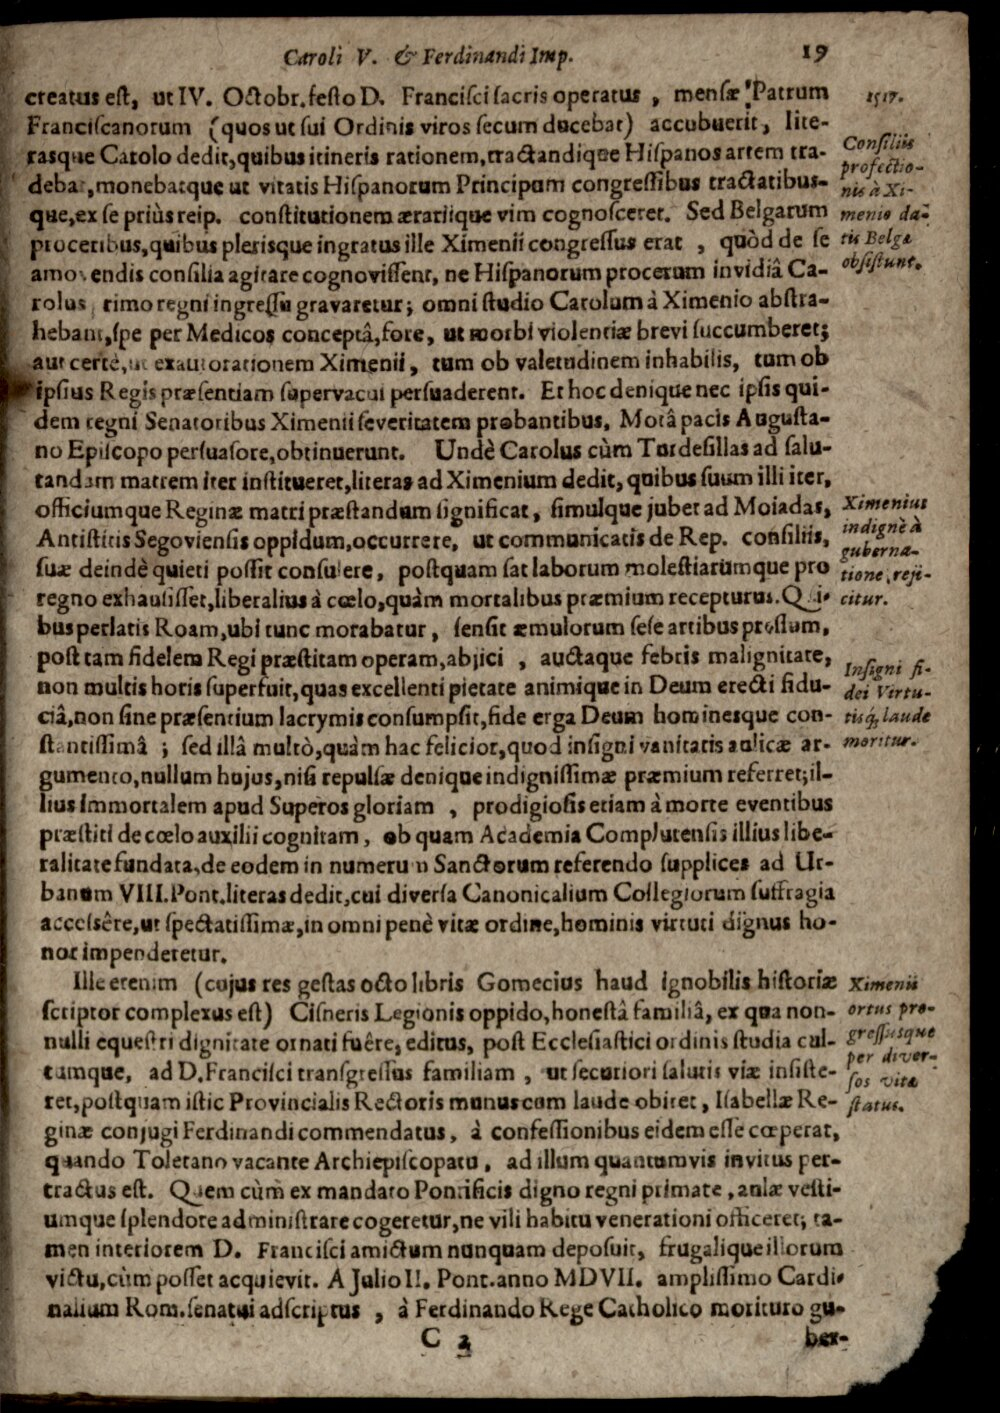 Caroli V. & Ferdinandi Imp. 19
creatus est, ut IV. Octobr. festo D. Francisci sacris operatus, mensæ Patrum
Franciscanorum (quos ut sui Ordinis viros secum ducebat) accubuerit, lite-
rasque Carolo dedit, quibus itineris rationem, tractandique Hispanos artem tra-
debat, monebatque ut vitatis Hispanorum Principum congressibus tractatibus-
que, ex se priùs reip. constitutionem ærariique vim cognosceret. Sed Belgarum
proceribus, quibus plerisque ingratus ille Ximenii congressus erat, quòd de se
amovendis consilia agitare cognovissent, ne Hispanorum procerum invidiâ Ca-
rolus primo regni ingressu gravaretur; omni studio Carolum à Ximenio abstra-
hebant, spe per Medicos conceptâ, fore, ut morbi violentiæ brevi succumberet;
aut certè, ut exautorationem Ximenii, tum ob valetudinem inhabilis, tum ob
ipsius Regis præsentiam supervacui persuaderent. Et hoc denique nec ipsis qui-
dem regni Senatoribus Ximenii severitatem probantibus, Motâ pacis Augusta-
no Episcopo persuasore, obtinuerunt. Undè Carolus cùm Tordesillas ad salu-
tandam matrem iter institueret, literas ad Ximenium dedit, quibus suum illi iter,
officiumque Reginæ matri præstandum significat, simulque jubet ad Moiadas,
Antistitis Segoviensis oppidum, occurrere, ut communicatis de Rep. consiliis,
suæ deindè quieti possit consulere, postquam sat laborum molestiarumque pro
regno exhausisset, liberalius à cœlo, quàm mortalibus præmium recepturus. Qui-
bus perlatis Roam, ubi tunc morabatur, sensit æmulorum sese artibus pressum,
post tam fidelem Regi præstitam operam, abjici, auctaque febris malignitate,
non multis horis superfuit, quas excellenti pietate animique in Deum erecti fidu-
ciâ, non sine præsentium lacrymis consumpsit, fide erga Deum hominesque con-
stantissimâ; sed illâ multò, quàm hac felicior, quod insigni vanitatis aulicæ ar-
gumento, nullum hujus, nisi repulsæ denique indignissimæ præmium referret; il-
lius immortalem apud Superos gloriam, prodigiosis etiam à morte eventibus
præstiti de cœlo auxilii cognitam, ob quam Academia Complutensis illius libe-
ralitate fundata, de eodem in numerum Sanctorum referendo supplices ad Ur-
banum VIII. Pont. literas dedit, cui diversa Canonicalium Collegiorum suffragia
accessêre, ut spectatissimæ, in omni penè vitæ ordine, hominis virtuti dignus ho-
nor impenderetur.
Ille etenim (cujus res gestas octo libris Gomecius haud ignobilis historiæ
scriptor complexus est) Cisneris Legionis oppido, honestâ familiâ, ex qua non-
nulli equestri dignitate ornati fuêre, editus, post Ecclesiastici ordinis studia cul-
tumque, ad D. Francisci transgressus familiam, ut securiori salutis viæ insiste-
ret, postquam istic Provincialis Rectoris munus cum laude obiret, Isabellæ Re-
ginæ conjugi Ferdinandi commendatus, à confessionibus eidem esse cœperat,
quando Toletano vacante Archiepiscopatu, ad illum quantumvis invitus per-
tractus est. Quem cùm ex mandato Pontificis digno regni primate, aulæ vesti-
umque splendore administrare cogeretur, ne vili habitu venerationi officeret; ta-
men interiorem D. Francisci amictum nunquam deposuit, frugalique illorum
victu, cùm posset acquievit. A Julio II. Pont. anno MDVII. amplissimo Cardi-
nalium Rom. senatui adscriptus, à Ferdinando Rege Catholico morituro gu-
C 2 ber-
1517.
Consiliis
profectio-
nis à Xi-
menio da-
tis Belgæ
obsistunt.
Ximenius
indignè à
guberna-
tione reji-
citur.
Insigni fi-
dei Virtu-
tisq; laude
moritur.
Ximenii
ortus pro-
gressusque
per diver-
sos vitæ
status.